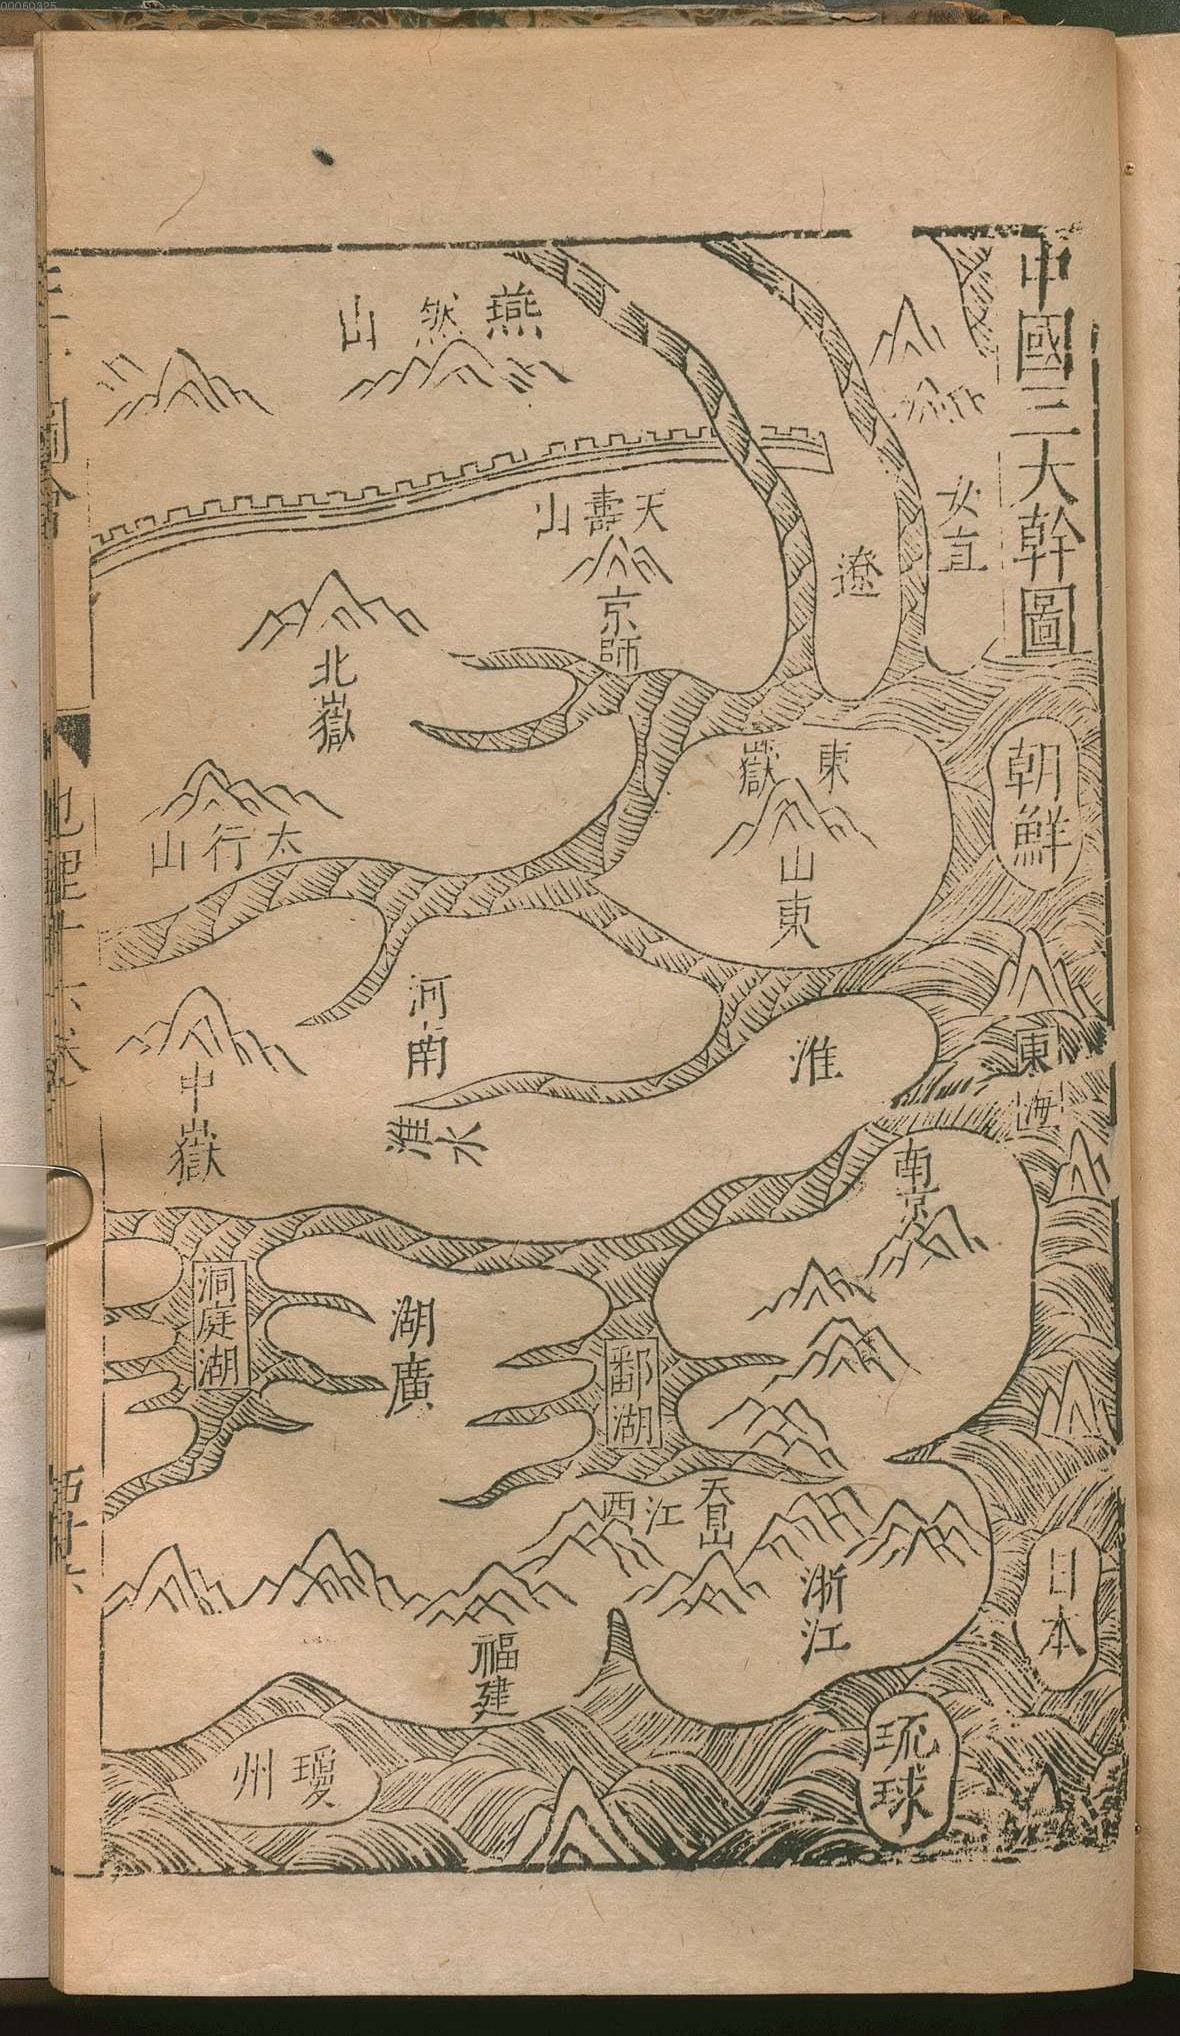 00060325
中國三大幹圖
女直
朝鮮
東海
日本
琉球
遼
燕然山
天壽山
京師
北嶽
太行山
東嶽
山東
河南
中嶽
淮
淮水
南京
洞庭湖
湖廣
鄱湖
江西
天目山
浙江
福建
瓊州